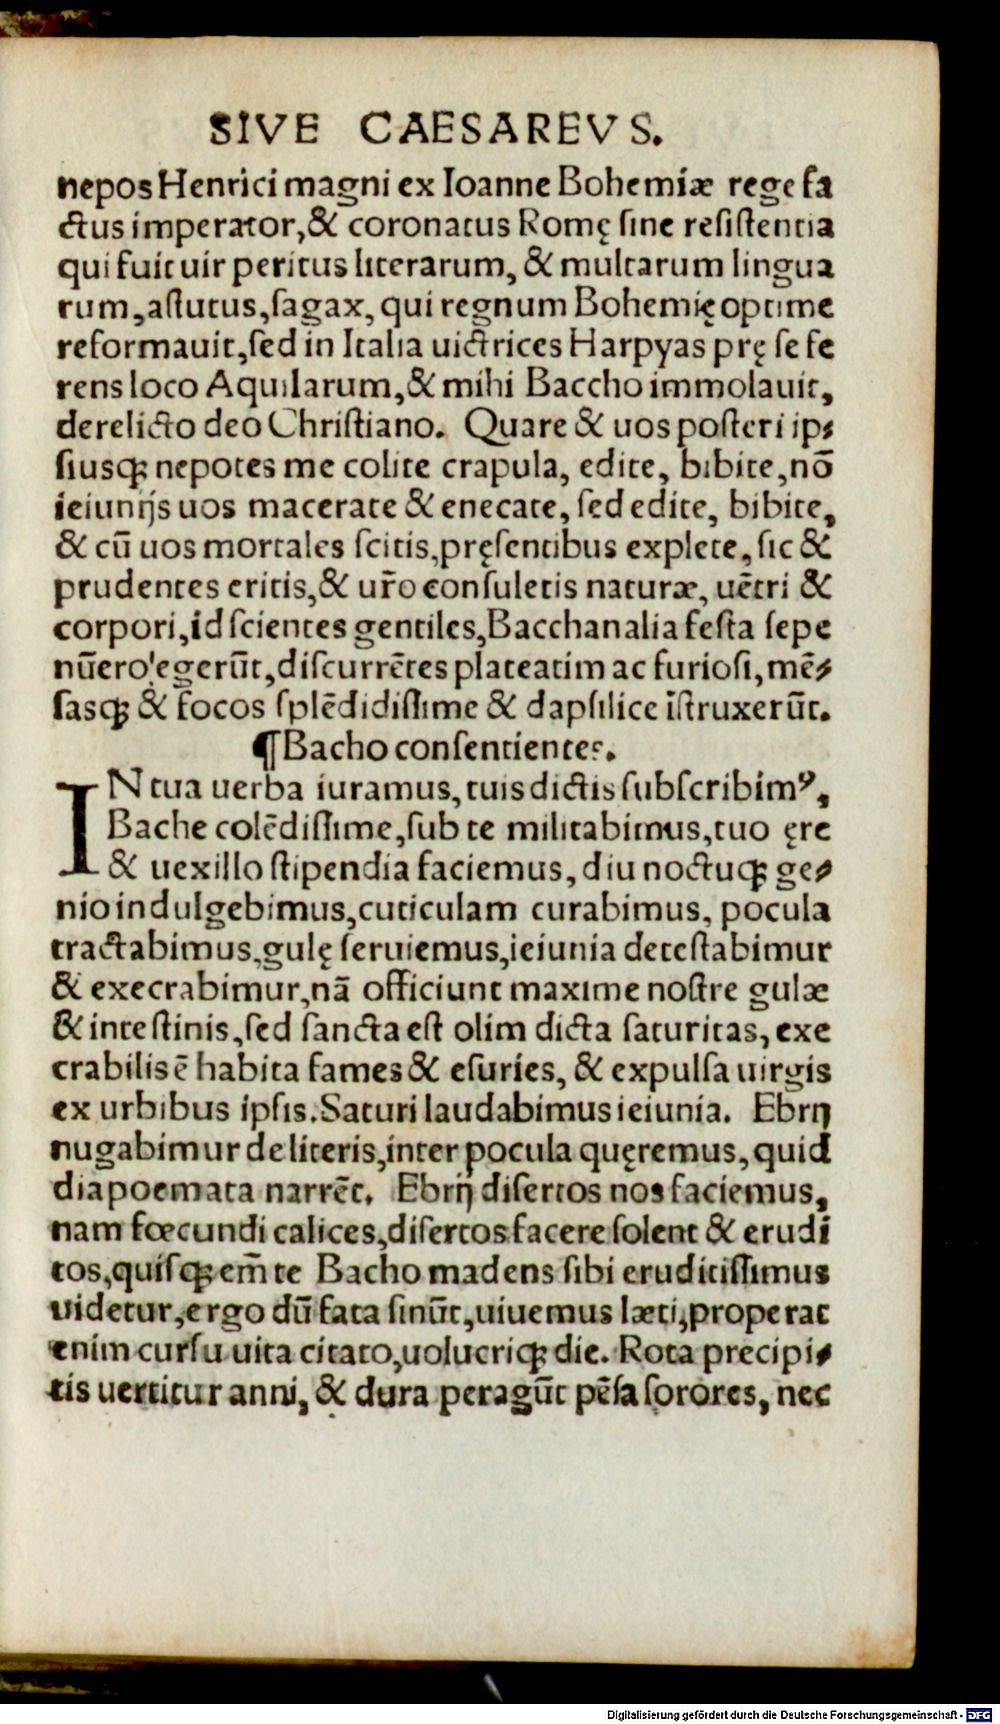 SIVE CAESAREVS.
nepos Henrici magni ex Ioanne Bohemiæ rege fa
ctus imperator, & coronatus Romę ſine reſiſtentia
qui fuit uir peritus literarum, & multarum lingua
rum, aſtutus, ſagax, qui regnum Bohemię optime
reformauit, ſed in Italia uictrices Harpyas prę ſe fe
rens loco Aquilarum, & mihi Baccho immolauit,
derelicto deo Chriſtiano. Quare & uos poſteri ip⸗
ſiusqꝫ nepotes me colite crapula, edite, bibite, nō
ieiunijs uos macerate & enecate, ſed edite, bibite,
& cū uos mortales ſcitis, pręſentibus explete, ſic &
prudentes eritis, & ur̄o conſuletis naturæ, uētri &
corpori, id ſcientes gentiles, Bacchanalia feſta ſepe
nūero egerūt, diſcurrētes plateatim ac furioſi, mē⸗
ſasqꝫ & focos ſplēdidiſſime & dapſilice īſtruxerūt.
¶ Bacho conſentientes.
IN tua uerba iuramus, tuis dictis ſubſcribimꝰ,
Bache colēdiſſime, ſub te militabimus, tuo ęre
& uexillo ſtipendia faciemus, diu noctuqꝫ ge⸗
nio indulgebimus, cuticulam curabimus, pocula
tractabimus, gulę ſeruiemus, ieiunia deteſtabimur
& execrabimur, nā officiunt maxime noſtre gulæ
& inteſtinis, ſed ſancta eſt olim dicta ſaturitas, exe
crabilis ē habita fames & eſuries, & expulſa uirgis
ex urbibus ipſis. Saturi laudabimus ieiunia. Ebrij
nugabimur de literis, inter pocula quęremus, quid
dia poemata narrēt. Ebrij diſertos nos faciemus,
nam fœcundi calices, diſertos facere ſolent & erudi
tos, quiſqꝫ em̄ te Bacho madens ſibi eruditiſſimus
uidetur, ergo dū fata ſinūt, uiuemus læti, properat
enim curſu uita citato, uolucriqꝫ die. Rota precipi⸗
tis uertitur anni, & dura peragūt pēſa ſorores, nec
Digitalisierung gefördert durch die Deutsche Forschungsgemeinschaft - DFG